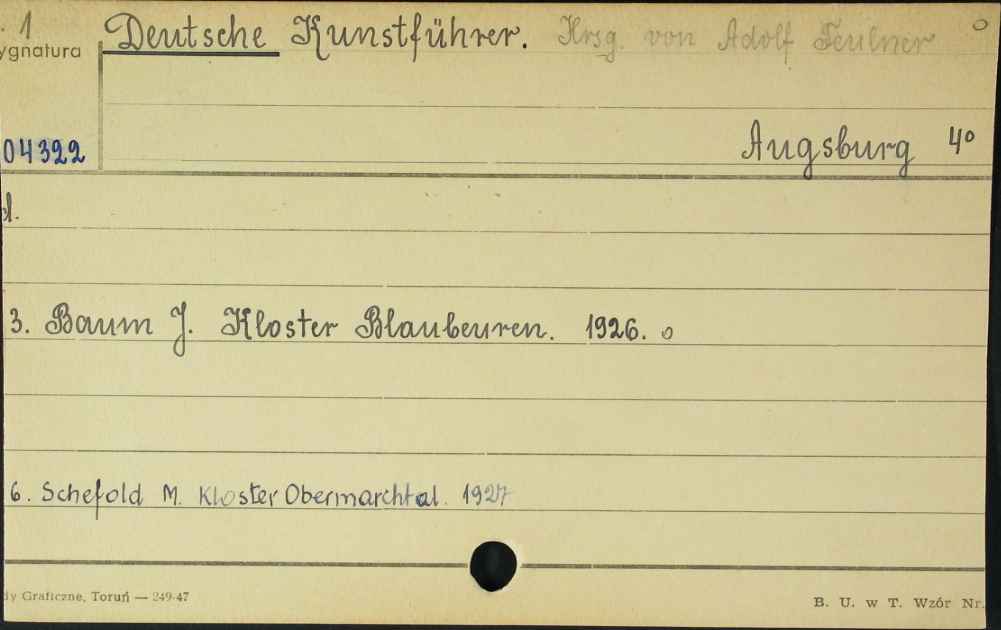 . 1 Deutsche Kunstführer. Hrsg. von Adolf Feulner o
ygnatura
04322 Augsburg 4o
d.
3. Baum J. Kloster Blaubeuren. 1926. o
6. Schefold M. Kloster Obermarchtal. 1927
dy Graficzne, Toruń — 249-47 B. U. w T. Wzór Nr.